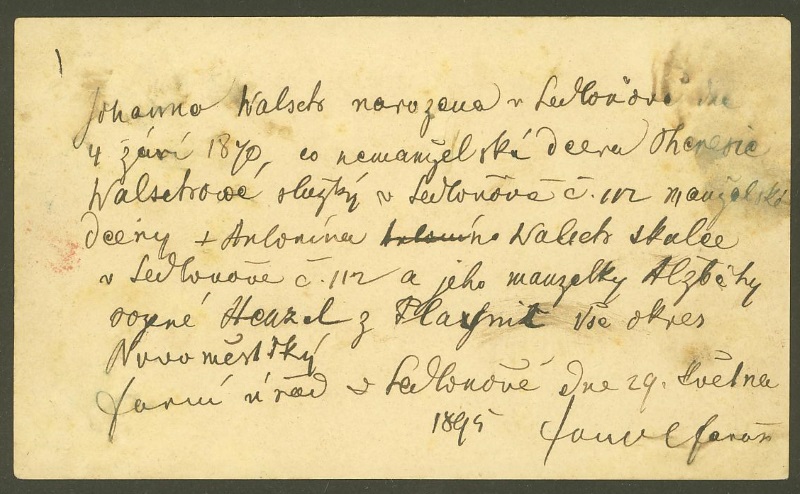 Johanna Walsch narozena v Sedloňově dne
4 září 1870, co nemanželská dcera Theresie
Walschové, služký v Sedloňově č. 112 manželské
dcery + Antonína Walsch skalce
v Sedlonově č. 112 a jeho manzelky Alžběhy
rozené Henzel z Plasnit vše okres
Novoměstský
farní úřad v Sedlonově dne 29. května
1895 farář